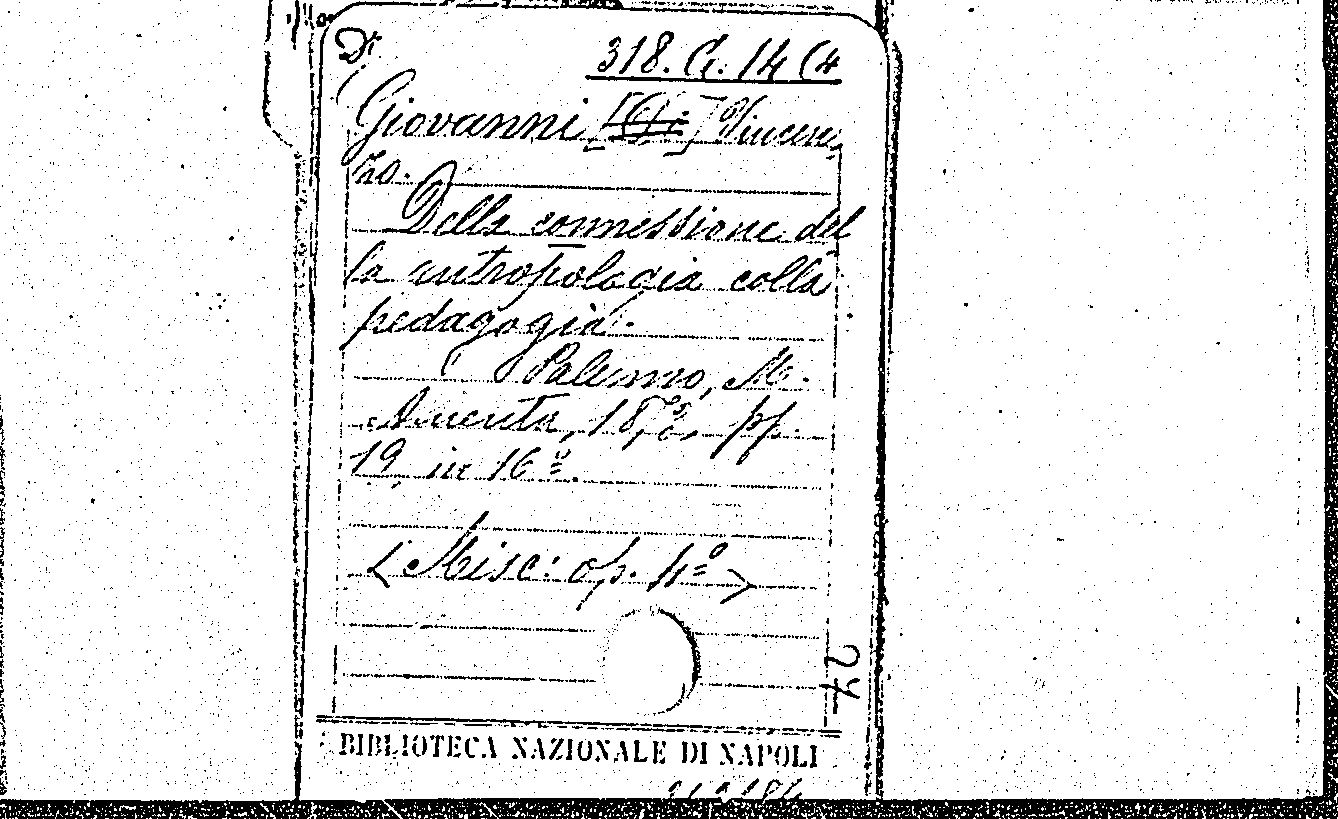 Di
318. G. 14 (4
Giovanni [Di] Vincen
zo.
Della connessione del
la antropologia colla
pedagogia.
Palermo, M.
Amenta, 1873, pp.
19, in 16º.
< Misc: op. 4º >
24
BIBLIOTECA NAZIONALE DI NAPOLI